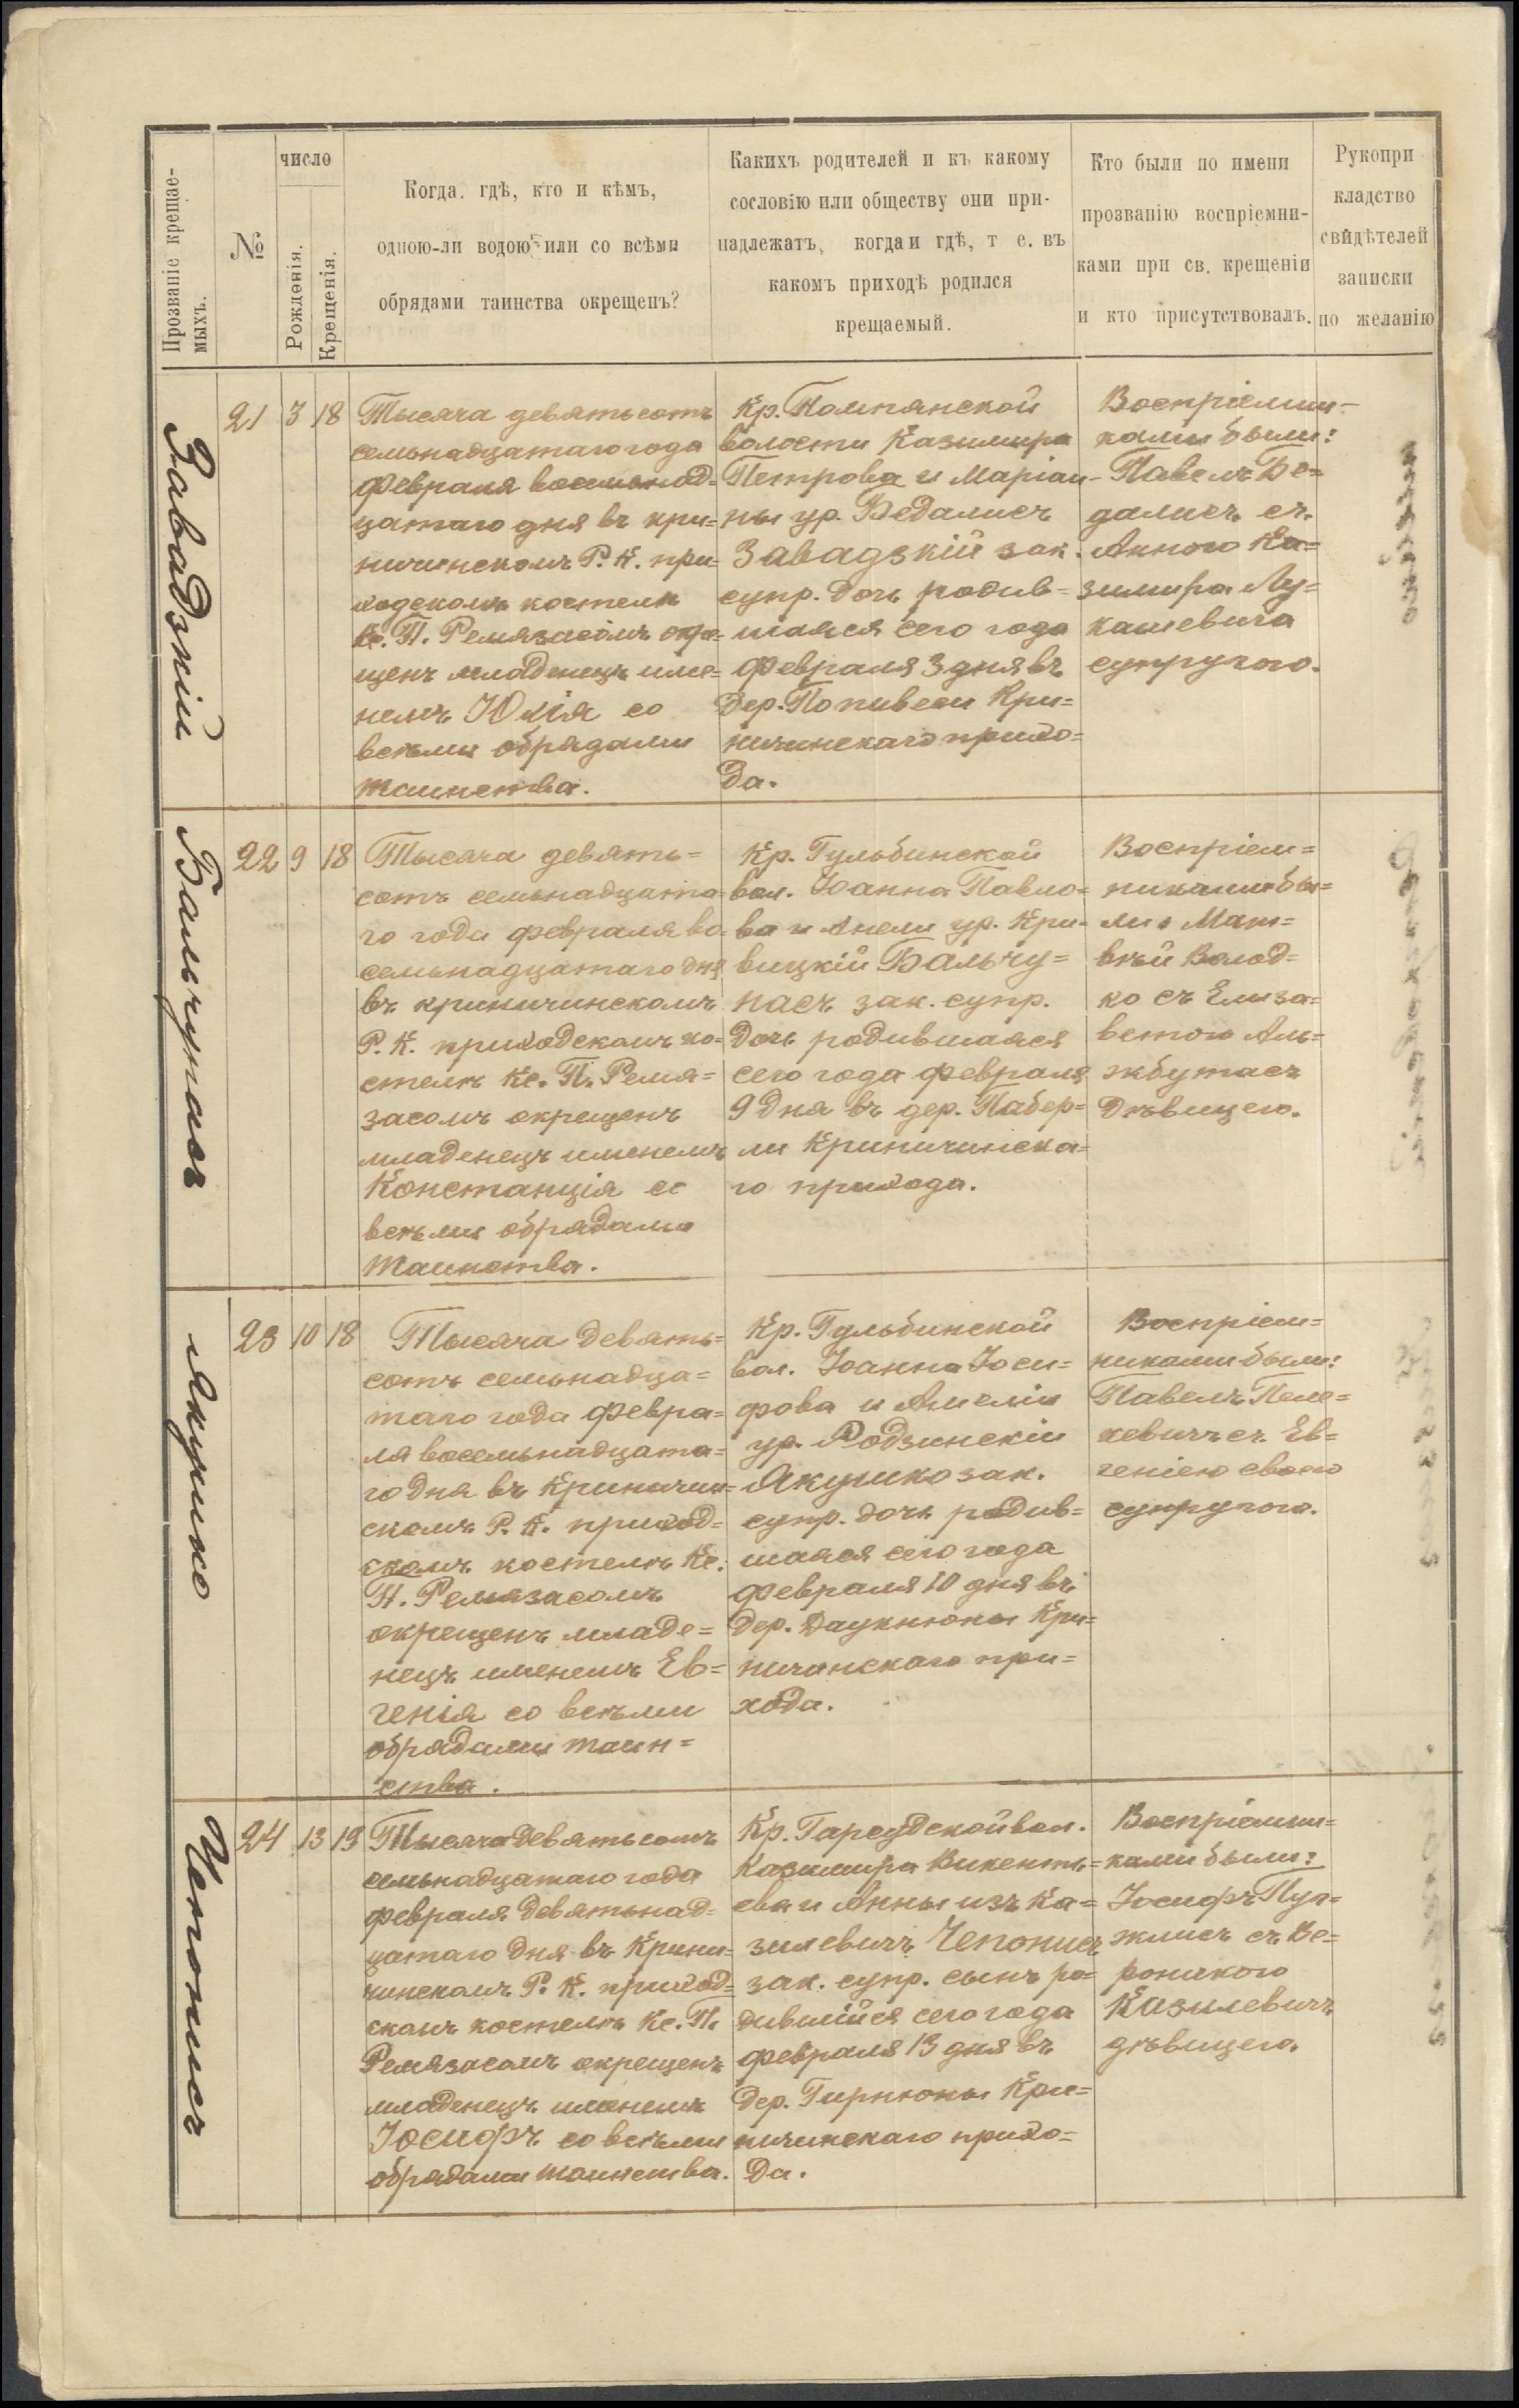 Прозваніе крещае-
мыхъ.
№
число
Рожденія.
Крещенія.
Когда. гдѣ, кто и кѣмъ,
одною-ли водою или со всѣми
обрядами таинства окрещенъ?
Какихъ родителей и къ какому
сословію или обществу они при-
надлежатъ, когда и гдѣ, т е. въ
какомъ приходѣ родился
крещаемый.
Кто были по имени
прозванію воспріемни-
ками при св. крещеніи
и кто присутствовалъ.
Рукопри
кладство
свидѣтелей
записки
по желанію
Завадзкій
21 3 18
Тысяча девятьсотъ
семьнадцатаго года
февраля восемьнад=
цатаго дня въ кри=
ничинскомъ Р. К. при=
ходскомъ костелѣ
Кс. П. Ремязасомъ окре=
щенъ младенецъ име=
немъ Юлія со
всѣми обрядами
таинства.
Кр. Помпянской
волости Казимира
Петрова и Маріан-
ны ур. Ведалисъ
Завадзкій зак.
супр. дочь родив=
шаяся сего года
февраля 3 дня въ
дер. Попивеси Кри=
ничинскаго прихо=
да.
Воспріемни-
ками были:
Павелъ Ве=
далисъ съ
Анною Ка=
зимира Лу=
кашевича
супругою.
Бальчунасъ
22 9 18
Тысяча девять=
сотъ семьнадцата=
го года февраля во=
семьнадцатаго дня
въ криничинскомъ
Р. К. приходскомъ ко=
стелѣ Кс. П. Ремя=
засомъ окрещенъ
младенецъ именемъ
Констанція со
всѣми обрядами
таинства.
Кр. Гульбинской
вол. Іоанна Павло=
ва и Анели ур. Кри-
вицкій Бальчу=
насъ зак. супр.
дочь родившаяся
сего года февраля
9 дня въ дер. Пабер=
ли Криничинска=
го прихода.
Воспріем=
никами бы=
ли: Мат=
вѣй Волод=
ко съ Елиза=
ветою Аль=
жбутасъ
дѣвицею.
Якушко
23 10 18
Тысяча девять=
сотъ семьнадца=
таго года февра=
ля восемьнадцата=
го дня въ Криничин=
скомъ Р. К. приход=
скомъ костелѣ Кс.
П. Ремязасомъ
окрещенъ младе=
нецъ именемъ Ев=
генія со всѣми
обрядами таин=
ства.
Кр. Гульбинской
вол. Іоанна Іоси=
фова и Амеліи
ур. Родзинскій
Якушко зак.
супр. дочь родив=
шаяся сего года
февраля 10 дня въ
дер. Даукнюны Кри=
ничинскаго при=
хода.
Воспріем=
никами были:
Павелъ Пеле=
кевичъ съ Ев=
геніею своею
супругою.
Чепонисъ
24 13 19
Тысяча девятьсотъ
семьнадцатаго года
февраля девятьнад=
цатаго дня въ Крини=
чинскомъ Р. К. приход=
скомъ костелѣ Кс. П.
Ремязасомъ окрещенъ
младенецъ именемъ
Іосифъ со всѣми
обрядами таинства.
Кр. вол.
Казимира Викенть=
ева и Анны изъ Ка=
зилевичъ Чепонисъ
зак. супр. сынъ ро=
дившійся сего года
февраля 13 дня въ
дер. Гирнюны Кри=
ничинскаго прихо=
да.
Воспріемни=
ками были:
Іосифъ Пуп=
жлисъ съ Ве=
роникою
Казилевичъ
дѣвицею.